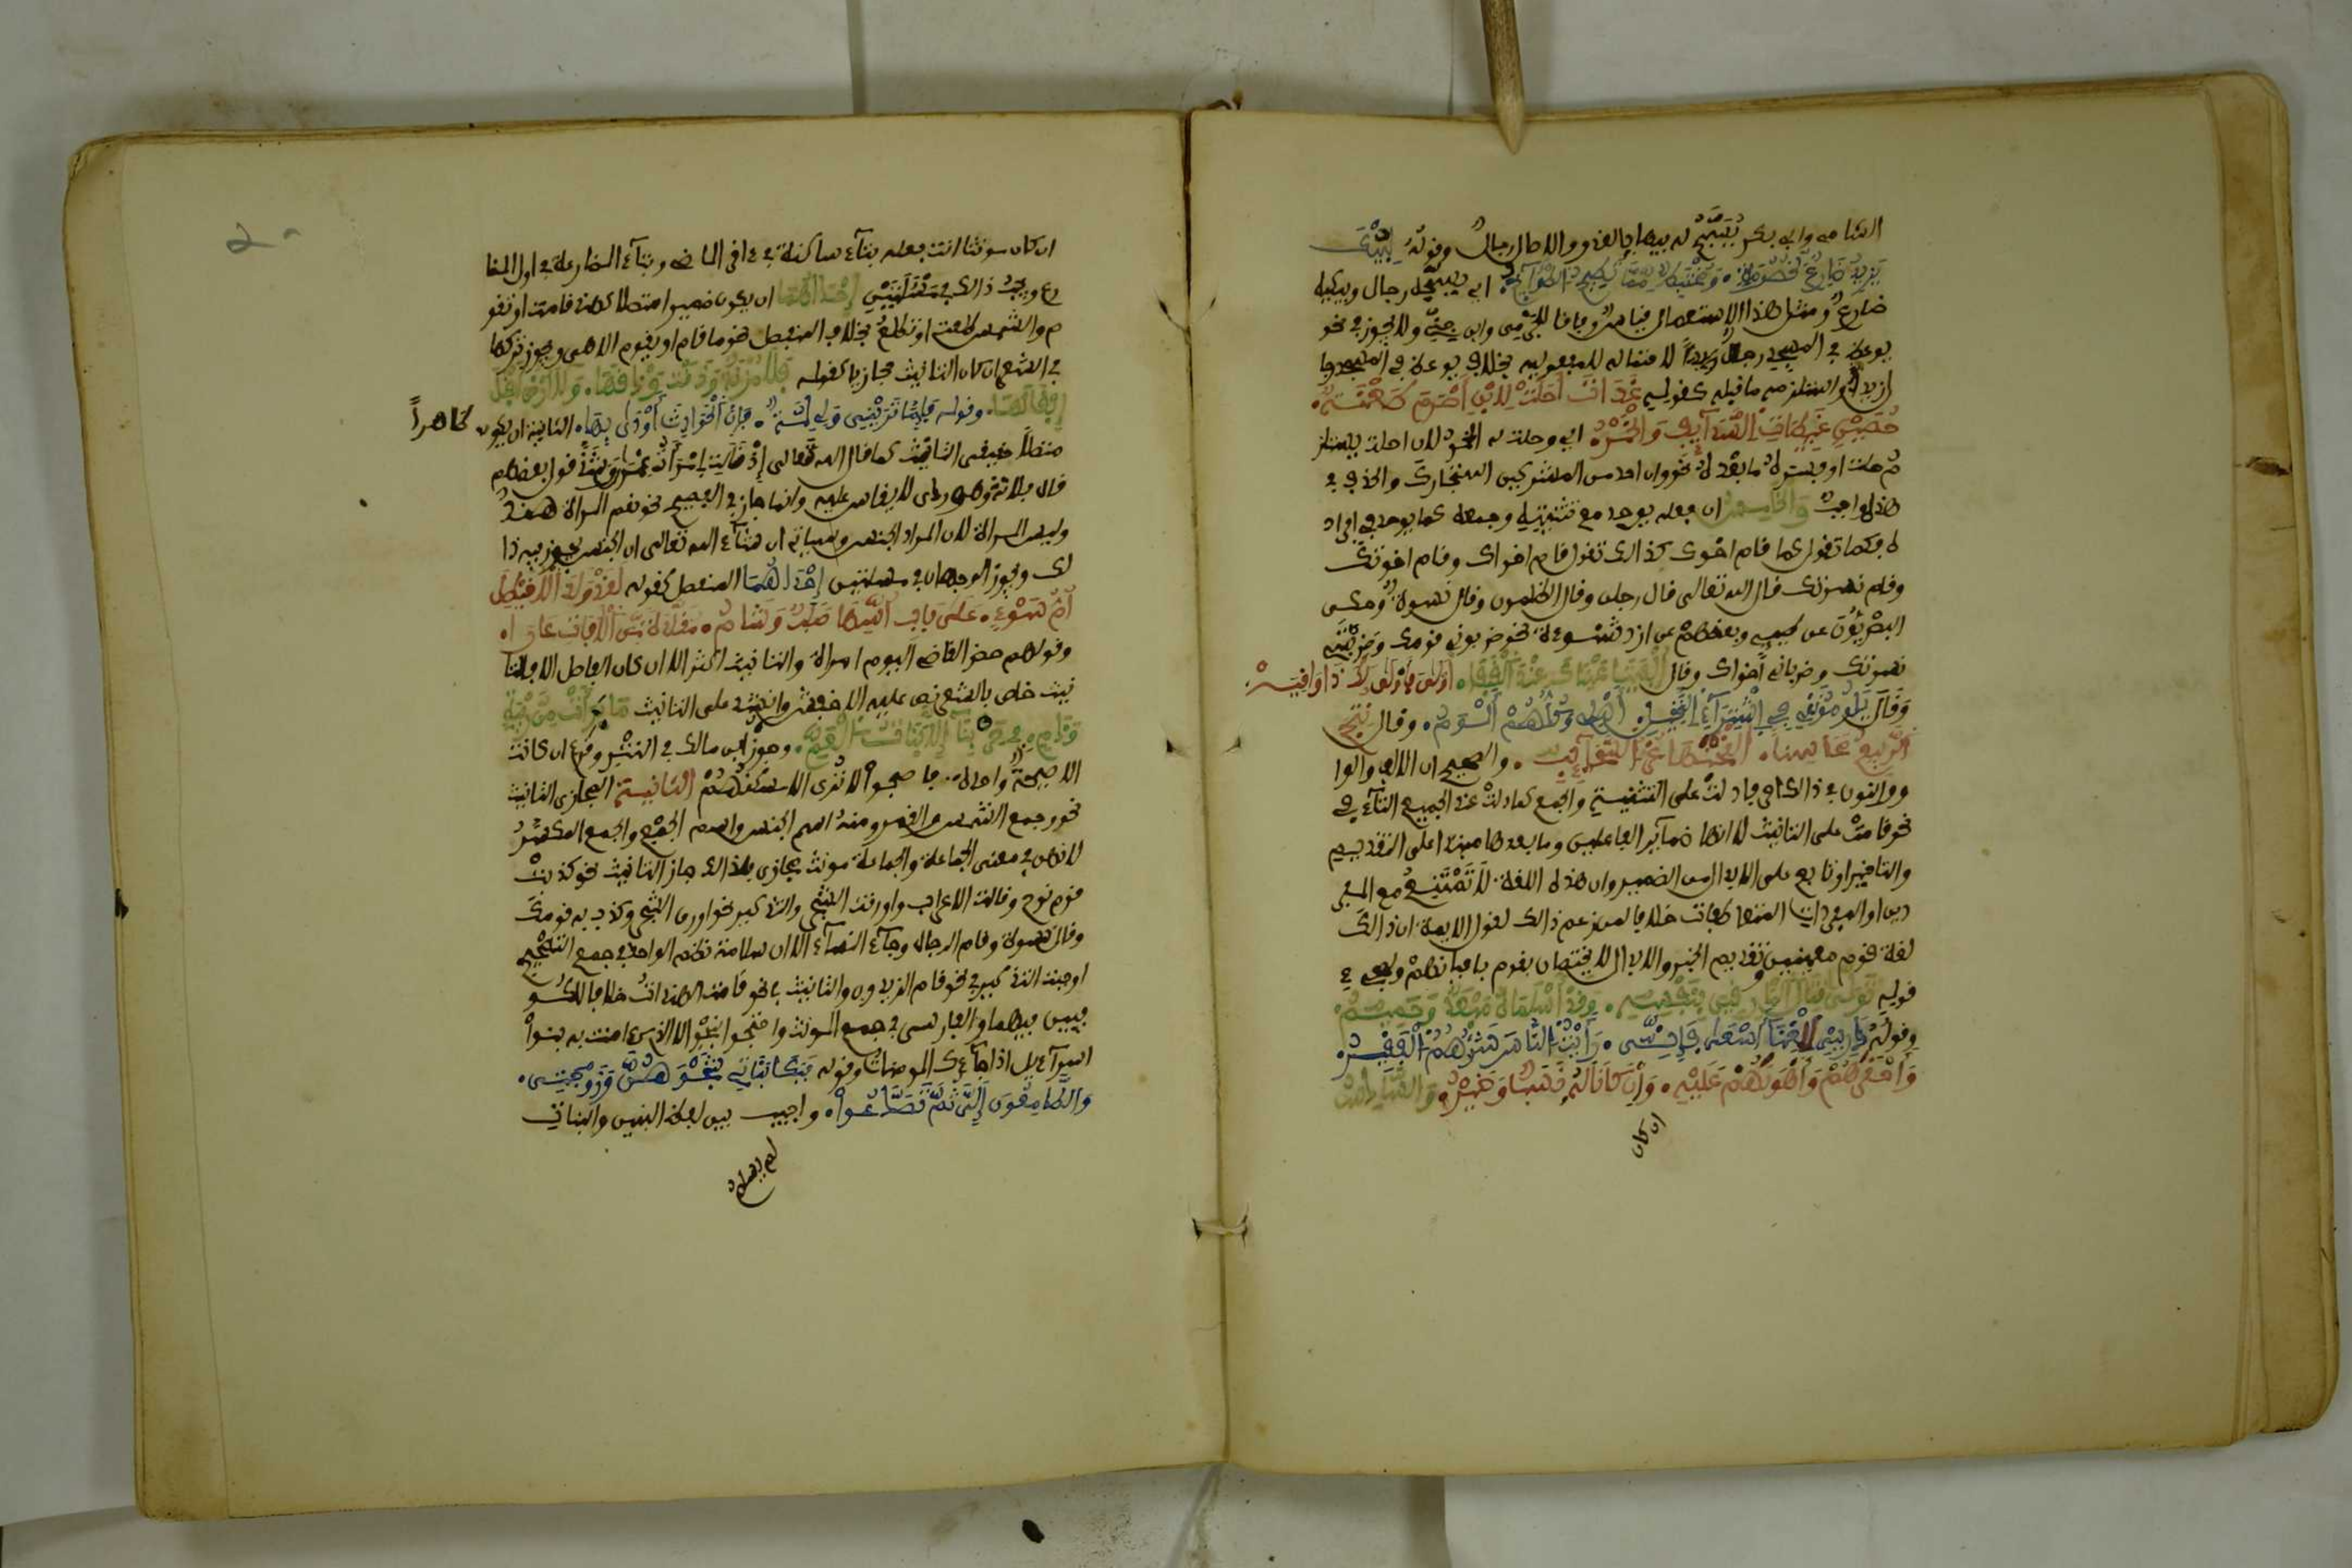 الشامي وابي بكر يُسَبَّح له فيها بالغدو والاصال رجال وقوله لِيُبْكَ
يَزِيدُ ضَارِعٌ لخُصُومَةٍ وَمُخْتَبِطٌ مِمَّا تُطِيحُ الطَّوَائِحُ اي يسبحه رجال ويبكيه
ضارع ومثل هذا الاستعمال قياسي وفاقا للجرمي وابن جني ولا يجوز في نحو
يوعظ في المسجد رجال زيداً لاحتماله للمفعولية بخلاف يوعظ في المسجد رجال
زيد او استلزمه ما قبله كقوله غَدَاةَ أَحَلَّتْ لِابْنِ أَصْرَمَ طَعْنَةٌ
حُصَيْنٍ عَبِيطَاتِ السَّدَائِفِ وَالْخَمْرُ اي وحلت له الخمر لان احلت يستلز
م حلت او فسره ما بعده نحو وان احد من المشركين استجارك والحذف في
هذه واجب والخامس ان فعله يوحد مع تثنيته وجمعه كما يوحد مع افراد
ه فكما تقول قام اخوك كذلك تقول قام اخواك وقام اخوتك
وقام نسوتك قال الله تعالى قال رجلان وقال الظلمون وقال نسوة وحكى
البصريون عن طيئ وبعضهم عن ازد شنوءة نحو ضربوني قومك وضربنني
نسوتك وضرباني اخواك وقال أُلْفِيَتَا عَيْنَاكَ عِنْدَ الْقَفَا أَوْلَى فَأَوْلَى لَكَ ذَا وَاقِيَهْ
وَقَالَ يَلُومُونَنِي فِي اشْتِرَاءِ النَّخِيلِ أَهْلِي وَكُلُّهُمْ أَلْوَمُ وقال نُتِجَ
الرَّبِيعُ مَحَاسِنًا أَلْقَحْنَهَا غُرُّ السَّحَائِبِ والصحيح ان الالف والوا
و والنون في ذلك احرف دلت على التثنية والجمع كما دلت عند الجميع التاء في
نحو قامت على التانيث لا انها ضمائر الفاعلين وما بعدها مبتدا على التقديم
والتاخير او تابع على الابدال من الضمير وان هذه اللغة لا تَمْتَنِعُ مع المفر
دين او المفردات المتعاطفات خلافا لمن زعم ذالك لقول الايمة ان ذالك
لغة قوم معينين وتقديم الخبر والابدال لا يختصان بقوم باعيانهم ولمجيء
قوله تَوَلَّى قِتَالَ الْمَارِقِينَ بِنَفْسِهِ وَقَدْ أَسْلَمَاهُ مُبْعَدٌ وَحَمِيمُ
وقوله ذَرِينِي لِلْغِنَا أَسْعَى فَإِنِّي رَأَيْتُ النَّاسَ شَرُّهُمُ الْفَقِيرُ
وَأَحْقَرُهُمْ وَأَهْوَنُهُمْ عَلَيْهِ وَإِنْ كَانَا لَهُ نَسَبٌ وَخِيرُ والسَّادِسُ
ان كان
ان كان مونثا انث فعله بتاء ساكنة في اخر الماضي وبتاء المضارعة في اول المضا
رع ويجب ذالك في مسئلتين إحداهما ان يكون ضميرا متصلا كهند قامت او تقو
م والشمس طلعت او تطلع بخلاف المنفصل نحو ما قام او يقوم الا هي ويجوز تركها
في الشعر ان كان التانيث مجازيا كقوله فَلَا مُزْنَةٌ وَدَقَتْ وَدْقَهَا وَلَا أَرْضَ أَبْقَلَ
إِبْقَالَهَا وقوله فَإِمَّا تَرَيْنِي وَلِي لِمَّةٌ فَإِنَّ الْحَوَادِثَ أَوْدَى بِهَا الثانية ان يكون ظاهراً
متصلا حقيقي التانيث كما قال الله تعالى إِذْ قَالَتِ امْرَأَتُ عِمْرَانَ وشذ قول بعضهم
قال فلانة وهو ردي لا يقاس عليه وانما جاز في الفصيح نحو نعم المراة هند
وبيس المراة لان المراد الجنس وسياتي ان شاء الله تعالى ان الجنس يجوز فيه ذا
لك ويجوز الوجهان في مسئلتين إحداهما المنفصل كقوله لَقَدْ وَلَدَ الْأُخَيْطِلَ
أُمُّ سَوْءٍ عَلَى بَابِ اسْتِهَا صُلُبٌ وَشَامُ
وقولهم حضر القاضي اليوم امراة والتانيث اكثر الا ان كان الفاصل الا فالتا
نيث خاص بالشعر نص عليه الاخفش وانشد على التانيث مَا بَرِئَتْ مِنْ رِيبَةٍ
وَذَمٍّ فِي حَرْبِنَا إِلَّا بَنَاتُ الْعَمِّ وجوز ابن مالك في النثر وقرئ ان كانت
الا صيحة واحدة فاصبحوا لا ترى الا مسكنهم الثانية المجازي التانيث
نحو وجمع الشمس والقمر ومنه اسم الجنس واسم الجمع والجمع المكسر
لانهن في معنى الجماعة والجماعة مونث مجازي فلذالك جاز التانيث نحو كذبت
قوم نوح وقالت الاعراب واورقت الشجر والتذكير نحو اورق الشجر وكذب به قومك
وقال نسوة وقام الرجال وجاء النساء الا ان سلامة نظم الواحد في جمع التصحيح
اوجبت التذكير في نحو قام الزيدون والتانيث في نحو قامت الهندات خلافا للكو
فيين فيهما والفارسي في جمع المونث واحتجوا بنحو الا الذي ءامنت به بنوا
اسراءيل اذا جاءك المومنات وقوله فَبَكَى بَنَاتِي شَجْوَهُنَّ وَزَوْجَتِي
وَالطَّامِعُونَ إِلَيَّ ثُمَّ تَصَدَّعُوا واجيب بين لفظ البنين والبنات
لم يسلم